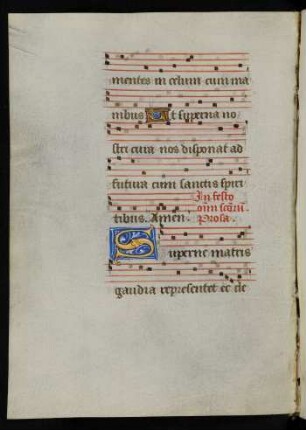 mentes in celum cum ma
nibus Et superna no
stri cura nos disponat ad
futura cum sanctis spiri
In festo
om̄ scōrū
tibus. Amen. Prosa.
Superne matris
gaudia representet ec cle